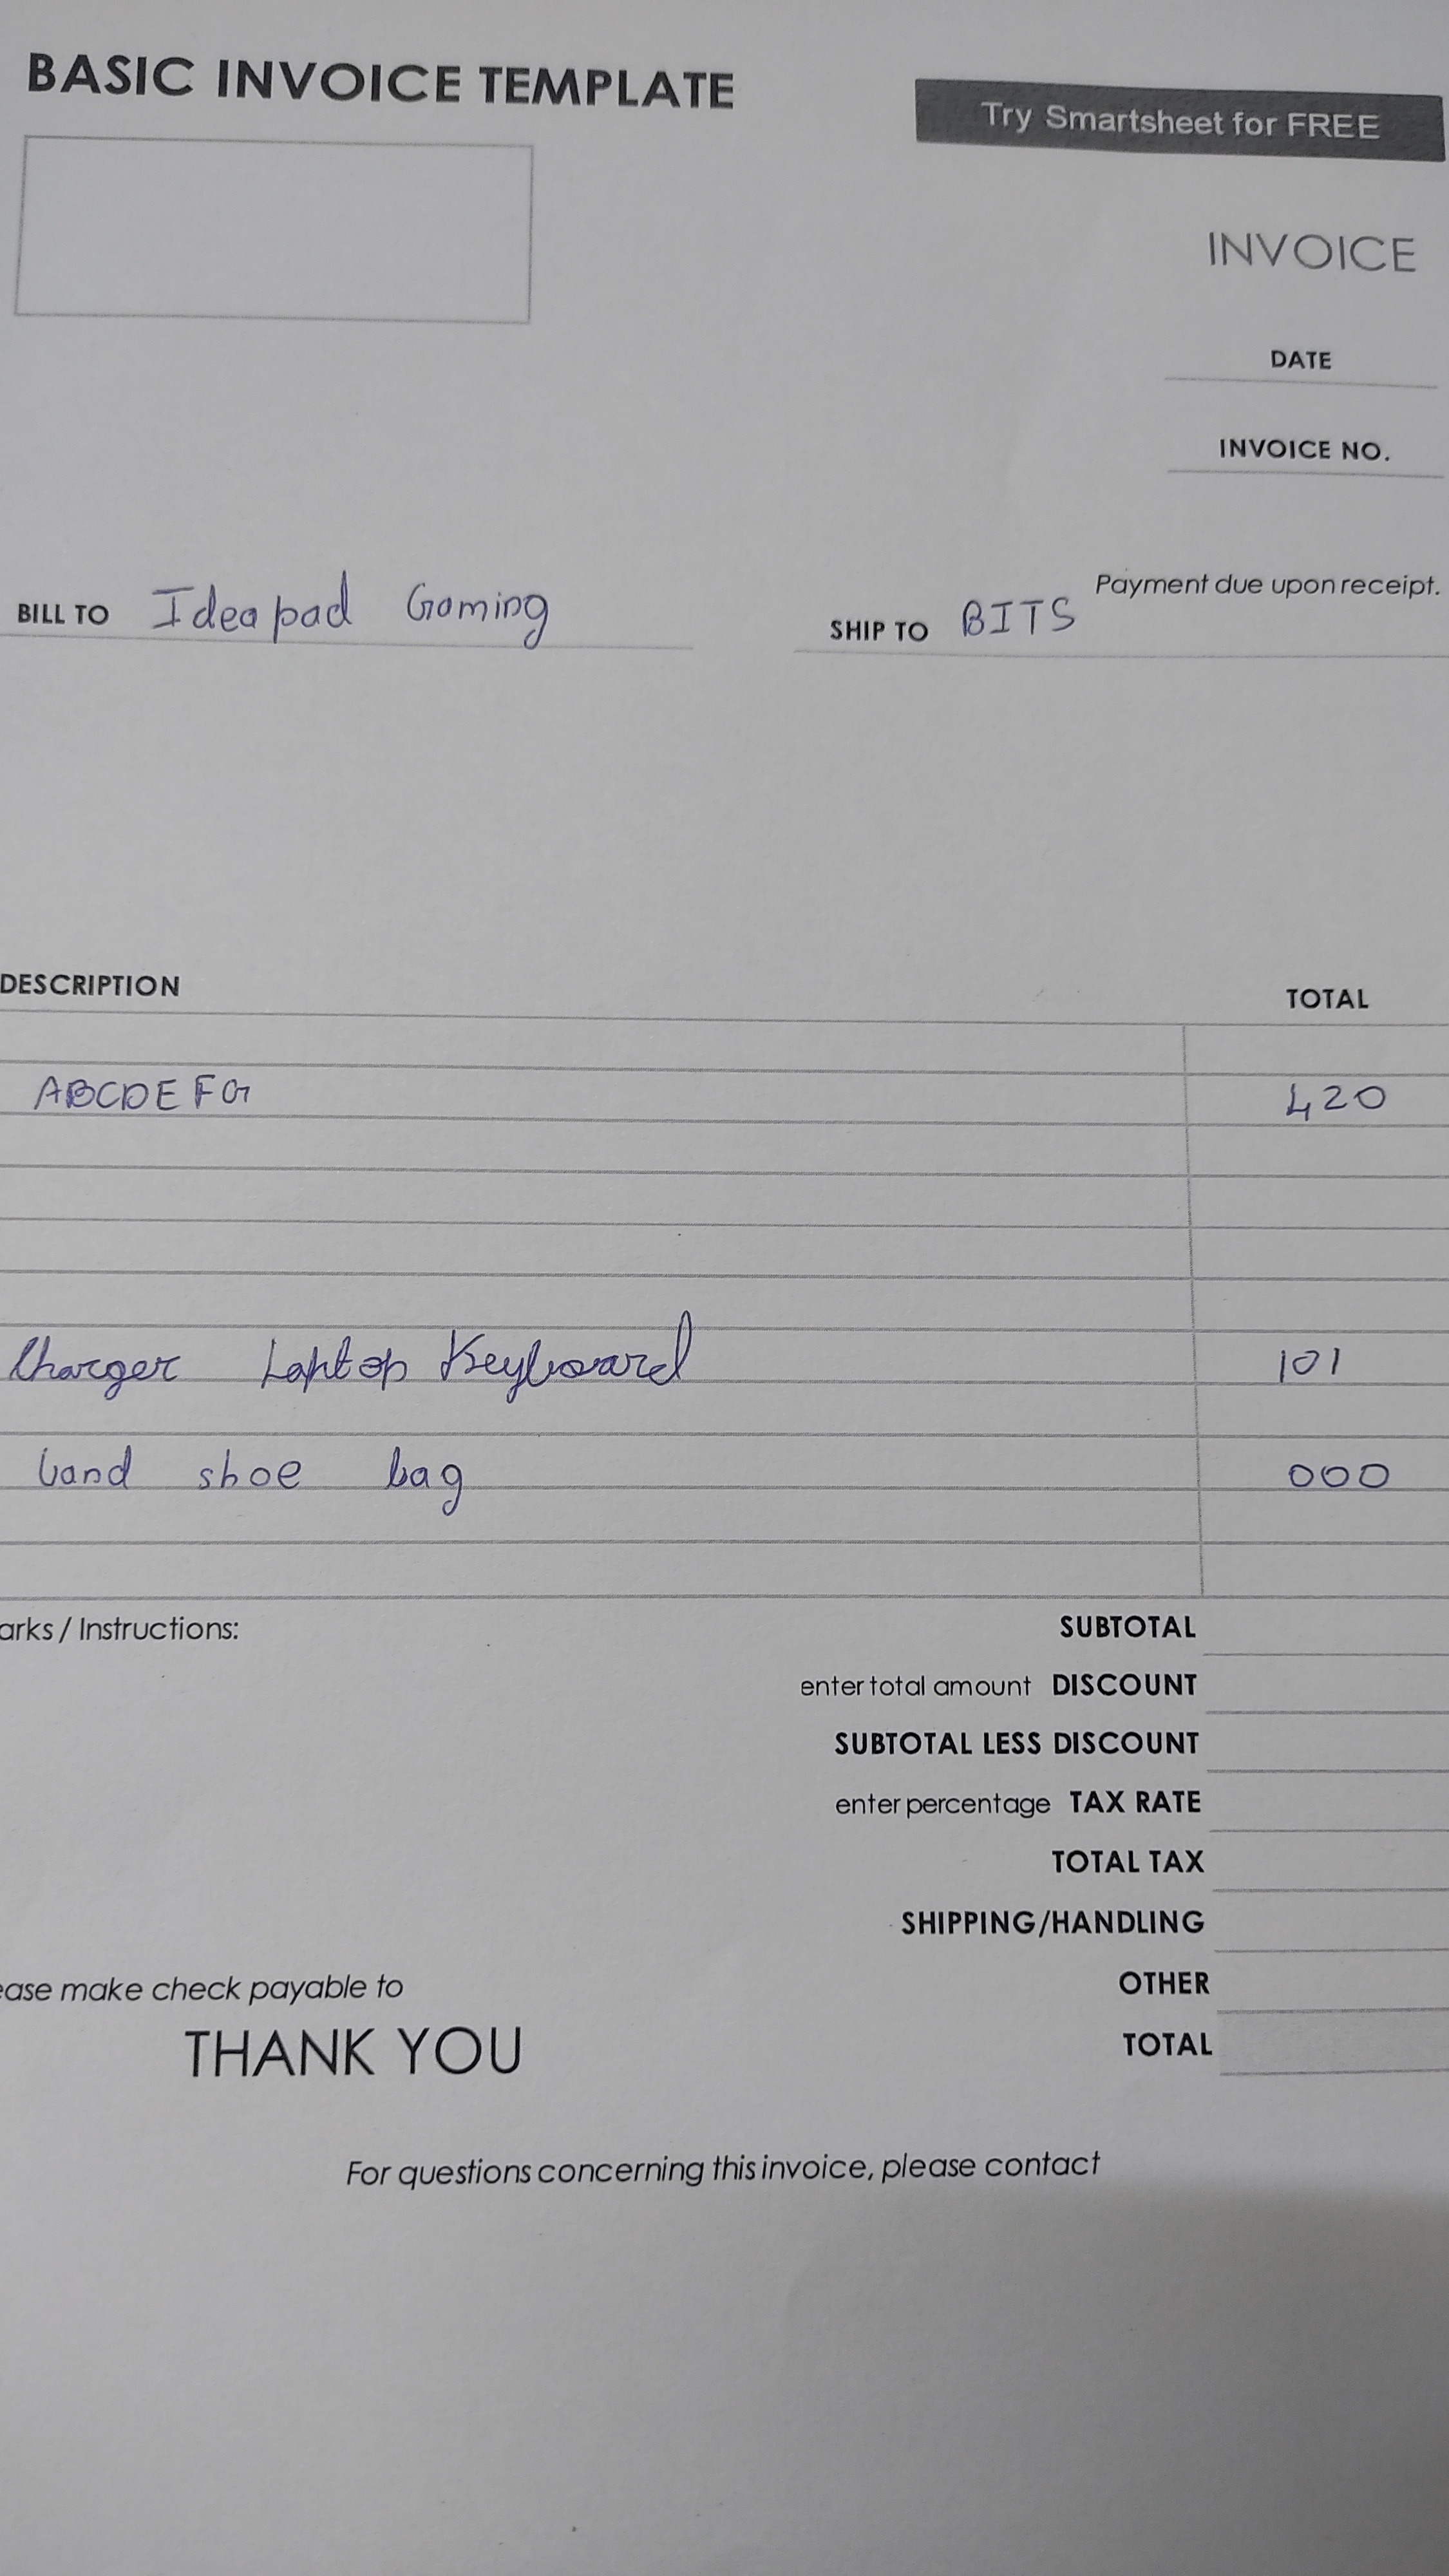 BASIC INVOICE TEMPLATE
Try Smartsheet for FREE
INVOICE
DATE
INVOICE NO.
Payment due upon receipt.
BILL TO Ideapad Gaming
SHIP TO BITS
DESCRIPTION TOTAL
ABCDEFG 420
Charger Laptop Keyboard 101
band shoe bag 000
arks / Instructions:
SUBTOTAL
enter total amount DISCOUNT
SUBTOTAL LESS DISCOUNT
enter percentage TAX RATE
TOTAL TAX
SHIPPING/HANDLING
ease make check payable to
OTHER
THANK YOU
TOTAL
For questions concerning this invoice, please contact